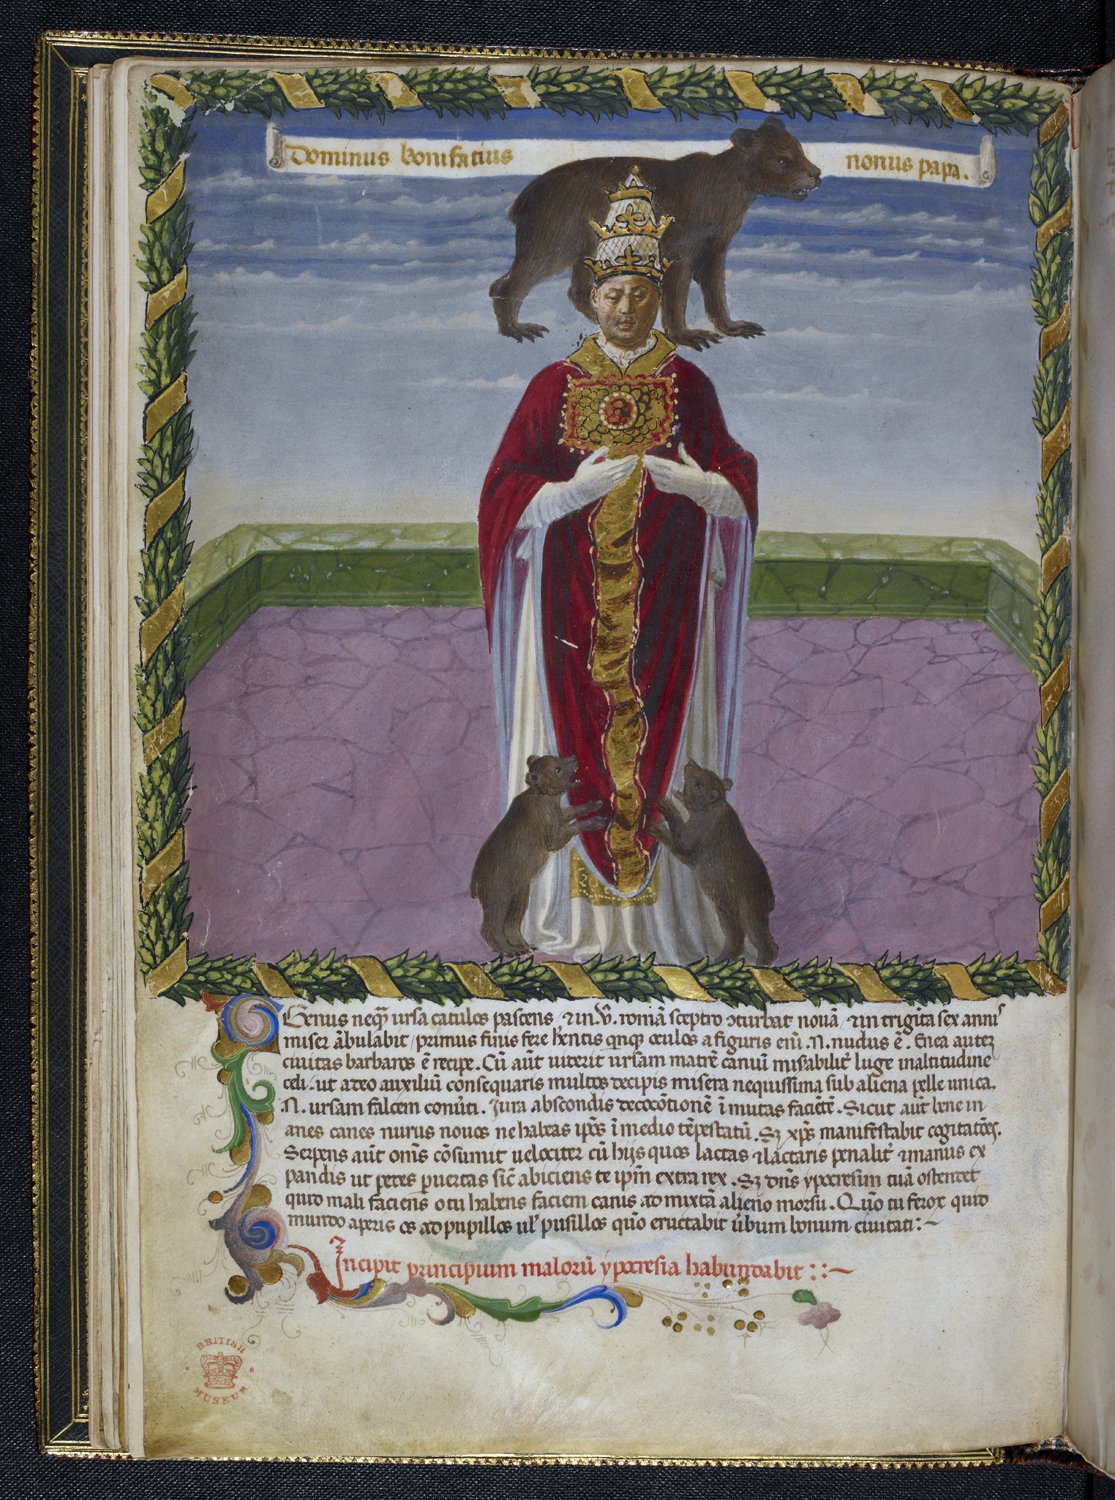 Dominus bonifatius nonus papa.
Genus neq̄ꝫ ursa catulos pascens ⁊ in .V. romā sceptro ɔturbat nouā ⁊ in trigīta sex annis
miser ābulabit primus finis fere hn̄tis qnqꝫ oculos a figuris eiū .N. nudus ē. Enea autē
ciuitas barbaros ē recipe. Cū aūt uiterit ursam matrē canuū misabilitr̄ luge inaltitudine
celi. ut a deo auxiliū consequaris multos decipis misera nequissima sub aliena pelle unica.
.N. ursam falcem conūti. Iura abscondis decoctionē ī mutas faciēt. Sicut aūt bene in
anes canes nurus nouos ne habeas ipōs ī medio tēpestatū. Sꝫ xp̄s manifestabit cogitatōes.
Serpens aūt om̄s cōsumit uelociter cū hijs quos lactas ⁊ lactaris penalitr̄ ⁊ manus ex
pandis ut petes puertas sic̄ abiciens te ip̄m extra rex. Sꝫ dn̄s ypocresim tuā ostendet
quid mali faciens o tu habens faciem canis ad mixtā alieno morsu. Quō tu ferox quid
mundo aperis os ad pupillos ul' pusillos quō eructabit ūbum bonum ciuitati:~
Incipit principium malorū ypocresia habundabit ::~
BRITISH
MUSEUM